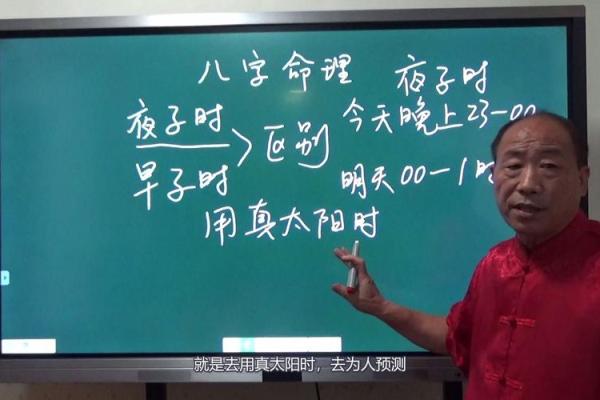 八字命理
夜子时
夜子时
今天晚上23-00
>区别
早子时
明天00-1时
用真太阳时
就是去用真太阳时，去为人预测